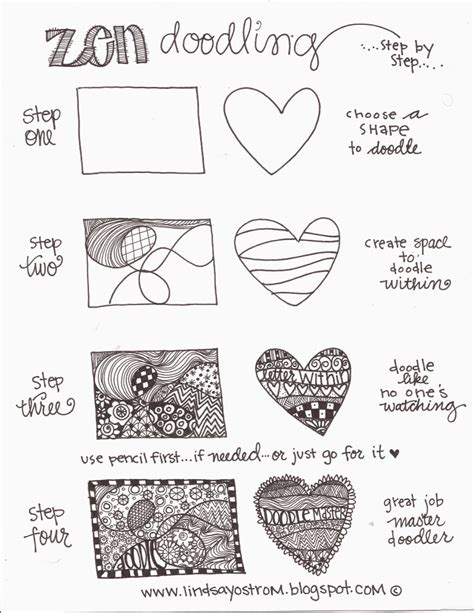 zen doodling
...step by
step....
step
one
choose a
SHAPE
to doodle
step
two
create space
to
doodle
within
step
three
Letter Within
doodle
like
no one's
watching
use pencil first...if needed...or just go for it ♥
step
four
DOODLE
DOODLE MASTER
great job
master
doodler
www.lindsayostrom.blogspot.com ©